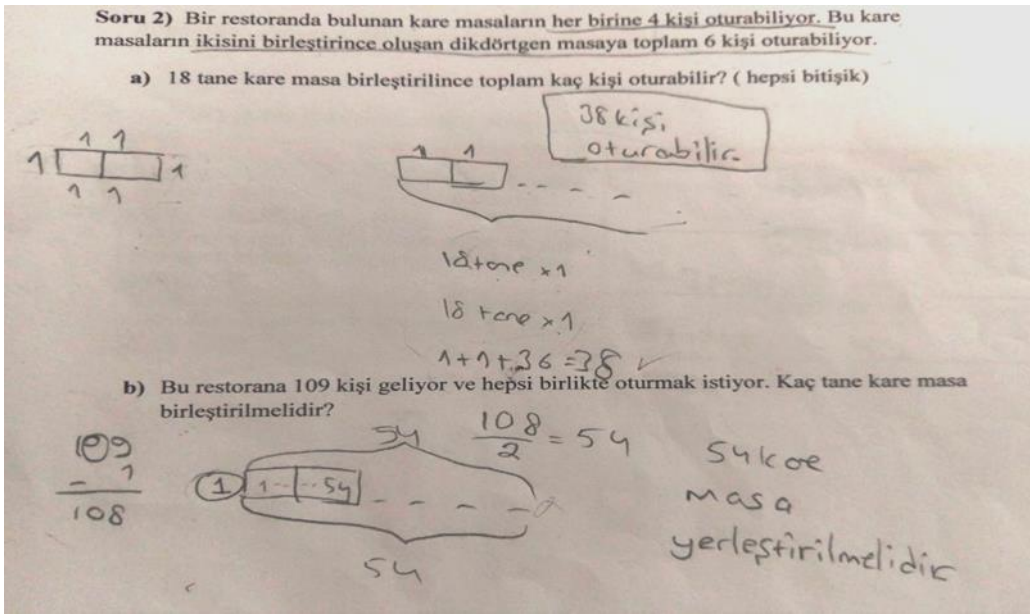 Soru 2) Bir restoranda bulunan kare masaların her birine 4 kişi oturabiliyor. Bu kare
masaların ikisini birleştirince oluşan dikdörtgen masaya toplam 6 kişi oturabiliyor.
a) 18 tane kare masa birleştirilince toplam kaç kişi oturabilir? ( hepsi bitişik)
38 kişi
oturabilir.
1 1
1 1
1 1
1 1
18 tane x1
18 tane x1
1+1+36=38 ✓
b) Bu restorana 109 kişi geliyor ve hepsi birlikte oturmak istiyor. Kaç tane kare masa
birleştirilmelidir?
109
- 1
108
54
1 1 54
54
108/2 = 54
54 kare
masa
yerleştirilmelidir